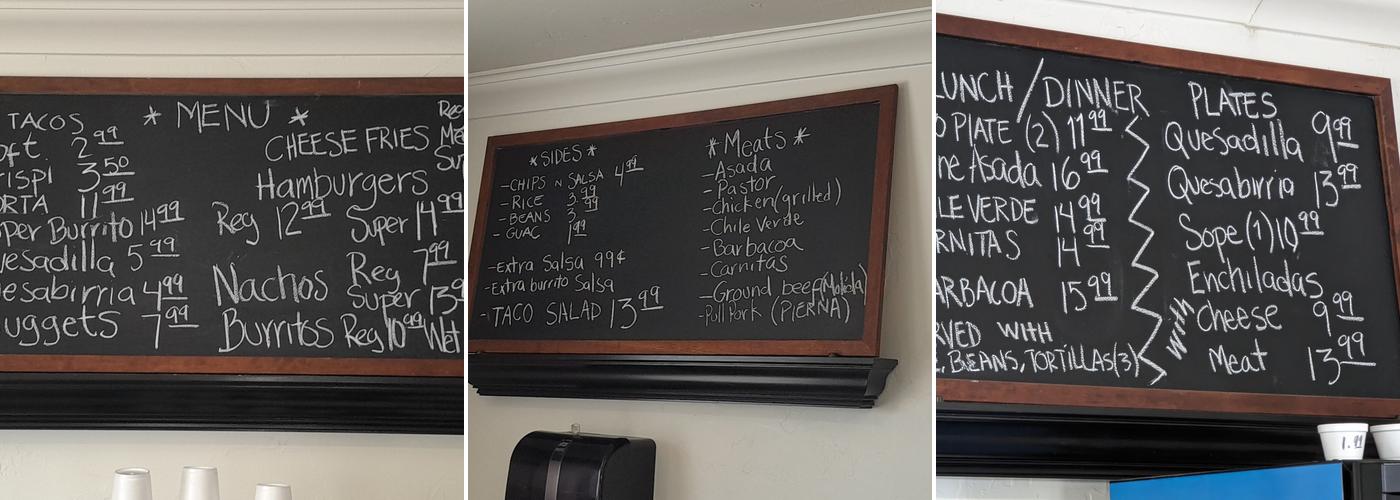 TACOS
2.99
3.50
11.99
Burrito 14.99
5.99
4.99
7.99
* MENU *
CHEESE FRIES
Hamburgers
Reg 12.99 Super 14.99
Nachos Reg 7.99
Super
Burritos Reg 10.99 Wet
*SIDES*
-CHIPS N SALSA 4.99
-RICE 3.99
-BEANS
-GUAC 1.99
-Extra Salsa 99¢
-Extra burrito Salsa
-TACO SALAD 13.99
*Meats*
-Asada
-Pastor
-Chicken(grilled)
-Chile Verde
-Barbacoa
-Carnitas
-Ground beef(Molida)
-Pull Pork (PIERNA)
/DINNER
PLATE (2) 11.99
Asada 16.99
VERDE 14.99
14.99
15.99
WITH
BEANS, TORTILLAS(3)
PLATES
Quesadilla 9.99
Quesabirria 13.99
Sope(1) 10.99
Enchiladas
With
Cheese 9.99
Meat 13.99
1.99